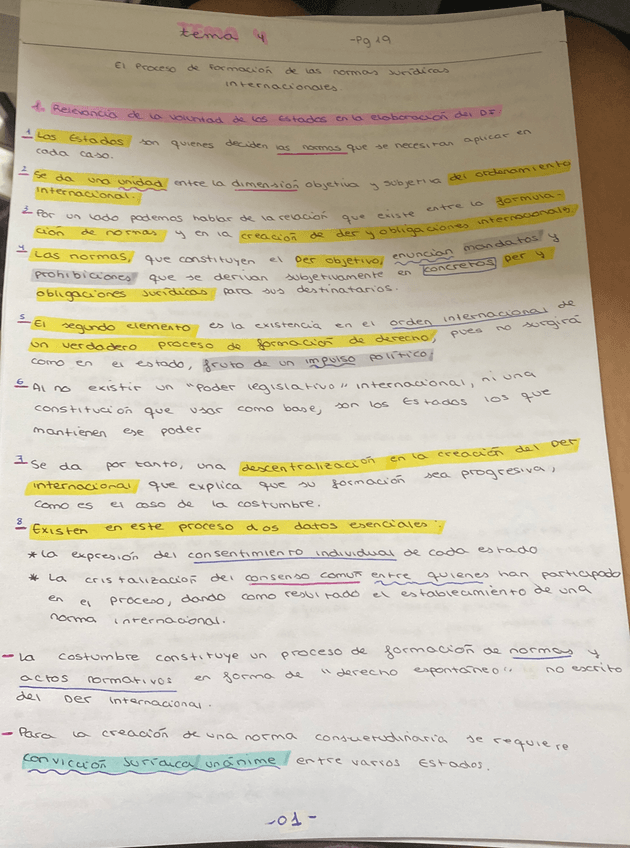 tema 4
-Pg 19
El Proceso de Formación de las normas Jurídicas
internacionales.
1. Relevancia de la voluntad de los Estados en la elaboración del DI
1 Los Estados son quienes deciden las normas que se necesitan aplicar en
cada caso.
2 Se da una unidad entre la dimensión objetiva y subjetiva del ordenamiento
internacional.
3 Por un lado podemos hablar de la relación que existe entre la formula-
ción de normas y en la creación de der y obligaciones internacionales
4 Las normas, que constituyen el Der objetivo, enuncian mandatos y
prohibiciones que se derivan subjetivamente en concretos Der y
obligaciones jurídicas para sus destinatarios.
5 El segundo elemento es la existencia en el orden internacional de
un verdadero proceso de formación de derecho, pues no surgirá
como en el estado, fruto de un impulso político,
6 Al no existir un "Poder legislativo" internacional, ni una
constitución que usar como base, son los Estados los que
mantienen ese poder
7 Se da por tanto, una descentralización en la creación del Der
internacional que explica que su formación sea progresiva,
como es el caso de la costumbre.
8 Existen en este proceso dos datos esenciales:
* La expresión del consentimiento individual de cada estado
* La cristalización del consenso común entre quienes han participado
en el proceso, dando como resultado el establecimiento de una
norma internacional.
- La costumbre constituye un proceso de formación de normas y
actos normativos en forma de "derecho espontáneo", no escrito
del Der internacional.
- Para la creación de una norma consuetudinaria se requiere
convicción jurídica unánime entre varios Estados.
-01-